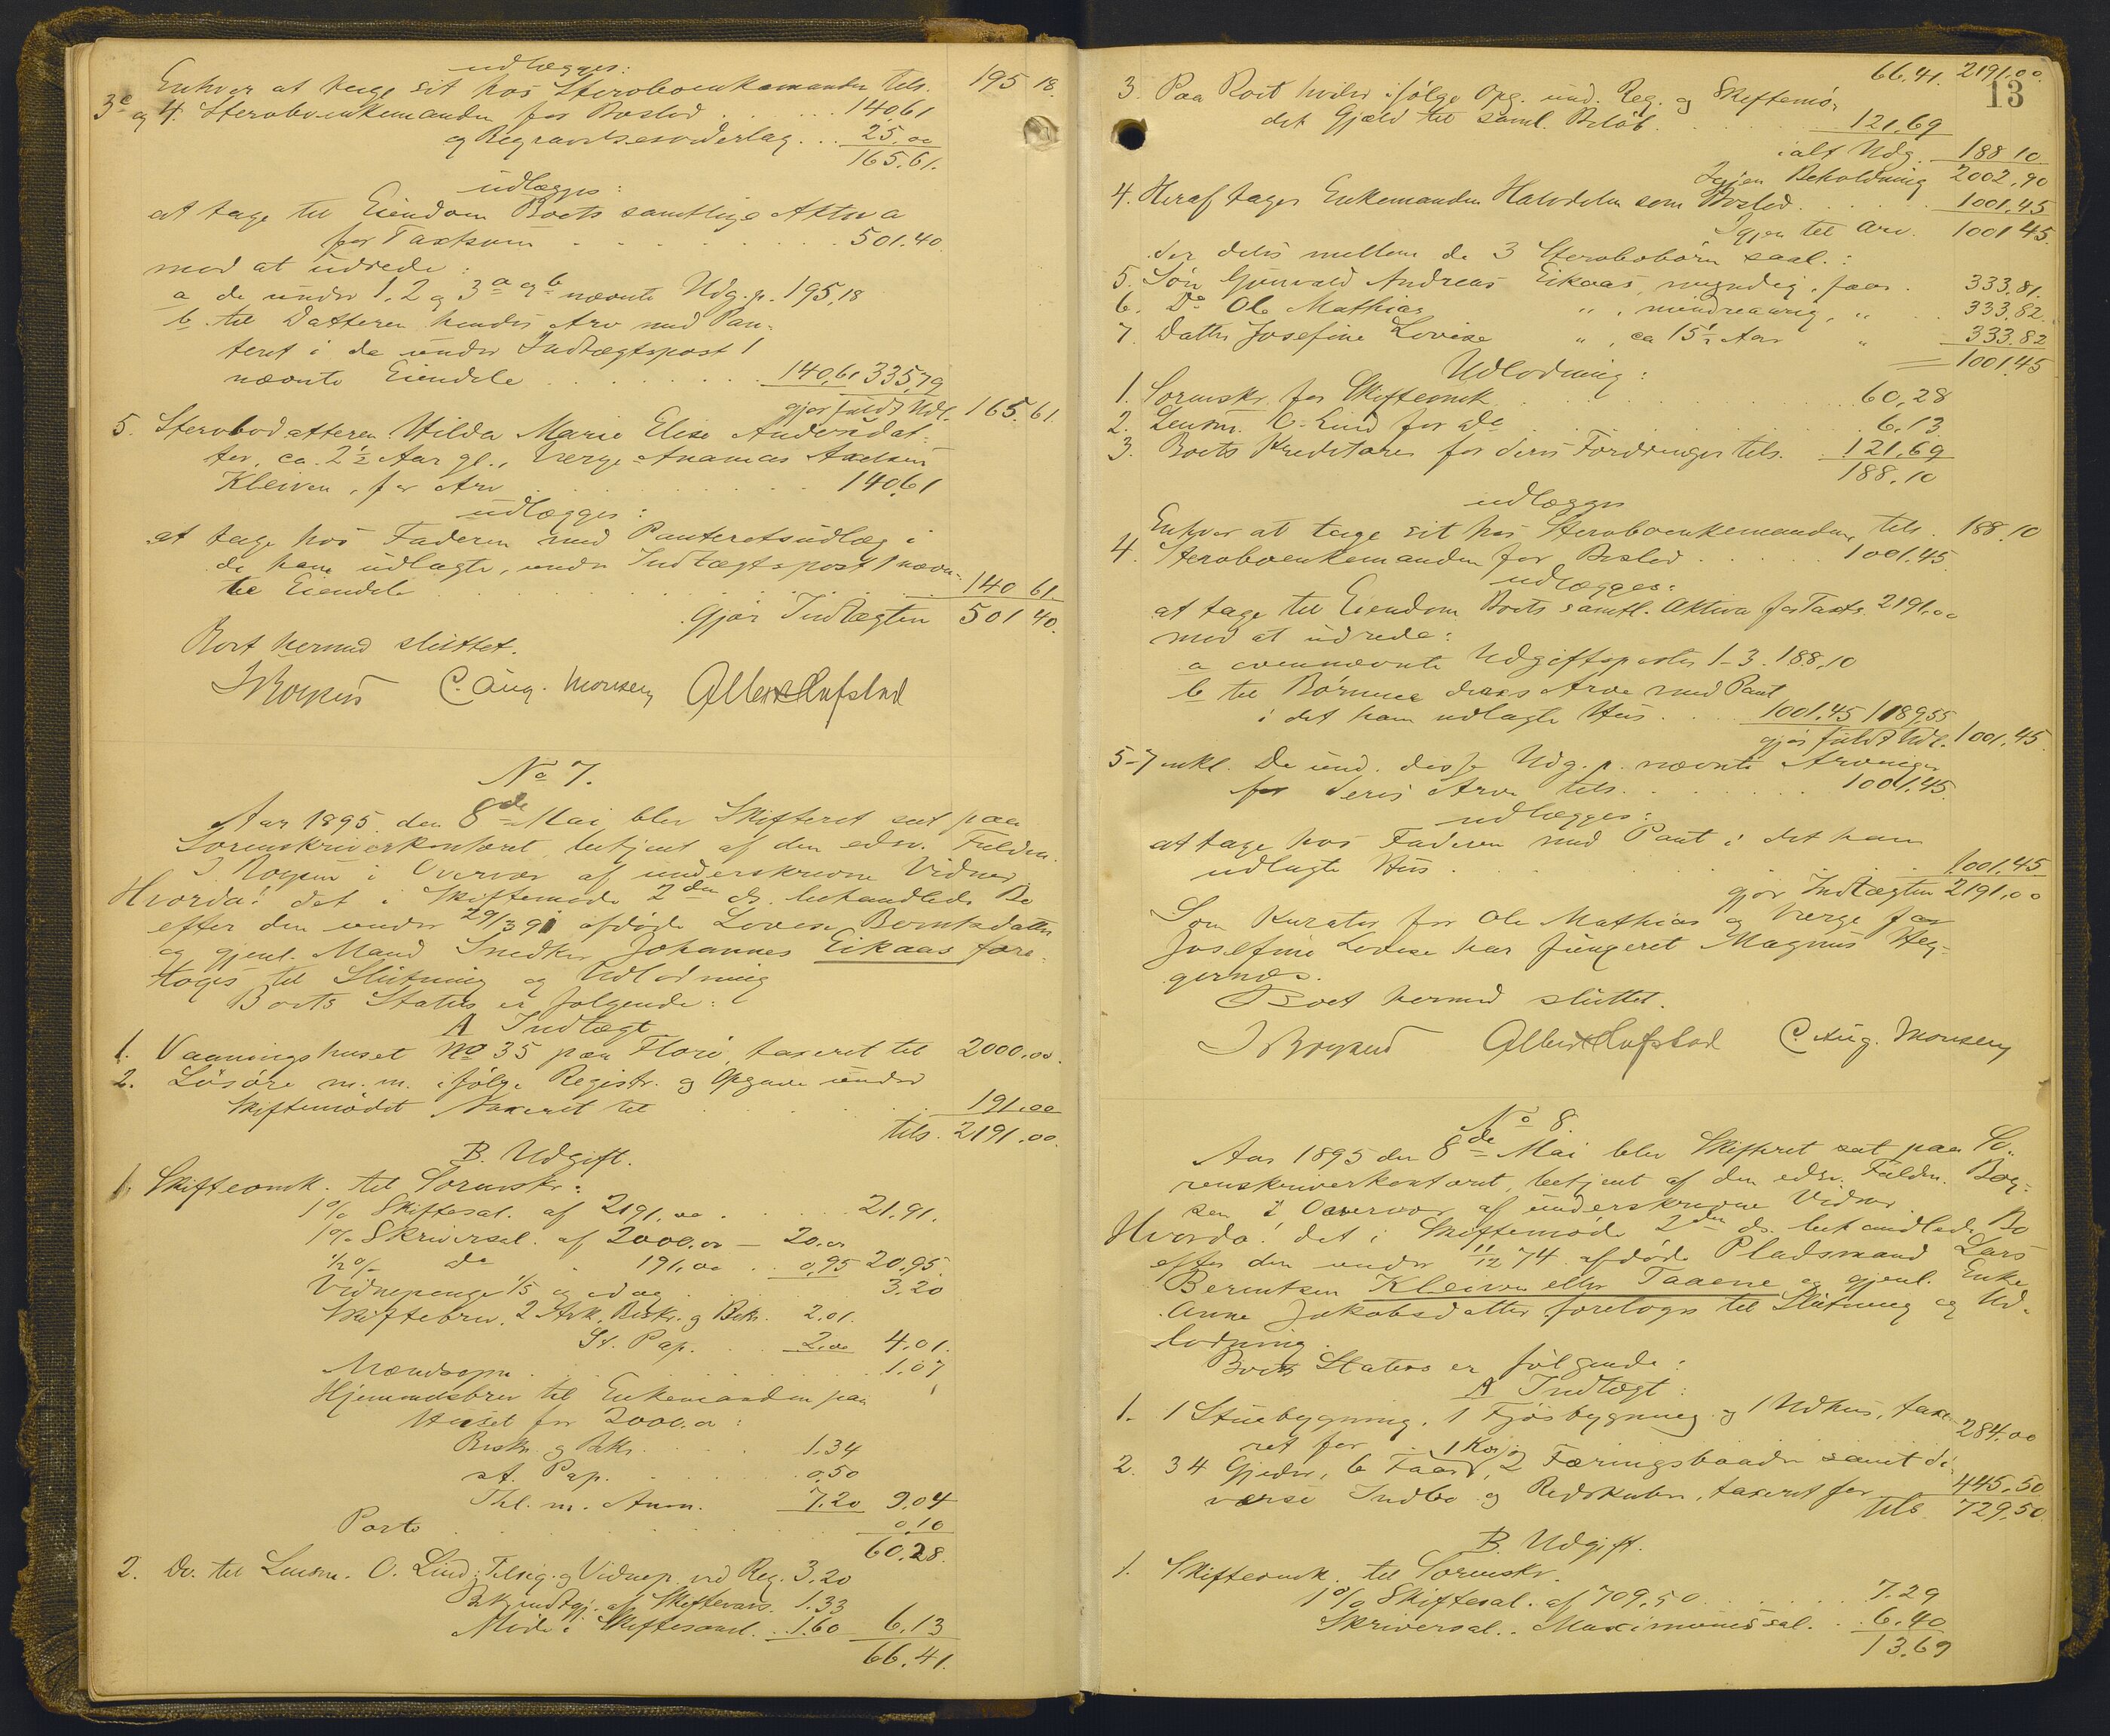 udlægges:
Enhver at tage sit hos Sterboenkemanden tils. 195 18.
3c og 4. Sterboenkemanden for Boslod . . . 140.61
og Begravelsesvederlag . . . 25.00
165.61.
udlægges:
at tage til Eiendom Boets samtlige Aktiva
for Taxtsum . . . 501.40
mod at udrede:
a de under 1, 2 og 3 a og b nævnte Udg.p. 195,18
b. til Datteren hendes Arv med Pan-
teret i de under Indtægtspost 1
nævnte Eiendele . . . 140,61 335,79
gjør fuldt Udl. 165.61.
5. Sterbodatteren Hilda Marie Elise Andersdat-
ter, ca. 2½ Aar gl., Værge Ananias
Kleiven, for Arv . . . 140.61
udlægges:
at tage hos Faderen med Panteretsudlæg i
de ham udlagte, under Indtægtspost 1 nævn-
te Eiendele . . . 140 61.
Gjør Indtægten 501 40.
Boet hermed sluttet.
C. Aug. Monsen
No 7.
Aar 1895 den 8de Mai blev Skifteret sat paa
Sorenskriverkontoret, betjent af den edsv. Fuldm.
i Overvær af underskrevne Vidner.
Hvorda! det i Skiftemøde 2den ds. behandlede Bo
efter den under 29/3 91 afdøde Lovise Berntsdatter
og gjenl. Mand Snedker Johannes Eikaas fore-
toges til Slutning og Udlodning
Boets Status er følgende:
A Indtægt
1. Vaaningshuset No 35 paa Florø, taxeret til 2000.00.
2. Løsøre m.m. ifølge Registr. og Opgave under
Skiftemødet taxeret til . . . 191.00
tils. 2191.00.
B. Udgift.
1. Skifteomk. til Sorenskr.:
1% Skiftesal. af 2191.00 . . . 21.91.
1% Skriversal. af 2000.00 — 20.00
½% do 191.00 . . 0,95 20,95
Vidnepenge 1/5 og idag . . . 3.20
Skiftebrev. 2 Ark. Beskr. og Bekr. 2.01.
St. Pap. . . 2.00 4.01.
. . . 1.07
Hjemmelsbrev til Enkemanden paa
Huset for 2000.00:
Beskr. og Bekr. . . . 1.34
st. Pap. . . . 0,50
Thl. m. Anm. 7.20 9.04
Porto . . . 0,10
60,28.
2. Do. til Lensm. O. Lind: Tilsig. og Vidnep. ved Reg. 3.20
Bekjendtgj. af Skiftevars. 1.33
Møde i Skiftesaml. . . 1.60 6,13
66.41.
13
66.41. 2191.00.
3. Paa Boet hviler ifølge Opg. und. Reg. og Skiftemø-
det Gjæld til saml. Beløb . . . 121.69
ialt Udg. 188 10.
Igjen Beholdning 2002.90
4. Heraf tager Enkemanden Halvdelen som Boslod . . . 1001.45
Igjen til Arv. 1001 45.
der deles mellem de 3 Sterbobørn saal.:
5. Søn Gunvald Andreas Eikaas, myndig, faar . 333.81.
6. Do Ole Mathias " , mindreaarig, " . . 333.82.
7. Datter Josefine Lovise " , ca 15½ Aar " 333.82
= 1001.45
Udlodning:
1. Sorenskr. for Skifteomk. . . . 60,28
2. Lensm. O. Lind for do . . . 6.13
3. Boets Kreditorer for deres Fordringer tils. . 121.69
188.10
udlægges
Enhver at tage sit hos Sterboenkemanden, tils. 188.10
4. Sterboenkemanden for Boslod . . . 1001.45
udlægges:
at tage til Eiendom Boets samtl. Aktiva for Taxts. 2191.00
mod at udrede:
a ovennævnte Udgiftsposter 1-3. 188,10
b til Børnene deres Arve med Pant
i det ham udlagte Hus . . . 1001.45 1189,55
gjør fuldt Udl. 1001.45.
5-7 inkl. De und. disse Udg.p. nævnte Arvinger
for deres Arve tils. . . . 1001.45.
udlægges:
at tage hos Faderen med Pant i det ham
udlagte Hus . . . 1001.45
gjør Indtægten 2191.00
Som Kurator for Ole Mathias og Værge for
Josefine Lovise har fungeret Magnus Heg-
gernes.
Boet hermed sluttet.
C. Aug. Monsen
No 8.
Aar 1895 den 8de Mai blev Skifteret sat paa So-
renskriverkontoret, betjent af den edsv. Fuldm. Bøg-
sen i Overvær af underskrevne Vidner.
Hvorda! det i Skiftemøde 2den ds. behandlede Bo
efter den under 11/12 74 afdøde Pladsmand Lars
Berentsen Kleiven eller Taaene og gjenl. Enke
Anne Jakobsdatter foretoges til Slutning og Ud-
lodning.
Boets Status er følgende:
A Indtægt:
1. 1 Stuebygning, 1 Fjøsbygning og 1 Udhus, taxe-
ret for . . . 284.00
2. 34 Gjeder, 6 Faar, 1 Ko og 2 Færingsbaade samt di-
verse Indbo og Redskaber, taxeret for 445,50
tils. 729,50.
B. Udgift.
1. Skifteomk. til Sorenskr.
1% Skiftesal. af 709.50 . . . 7.29
Skriversal. . Maximumssal. . . 6.40
13.69